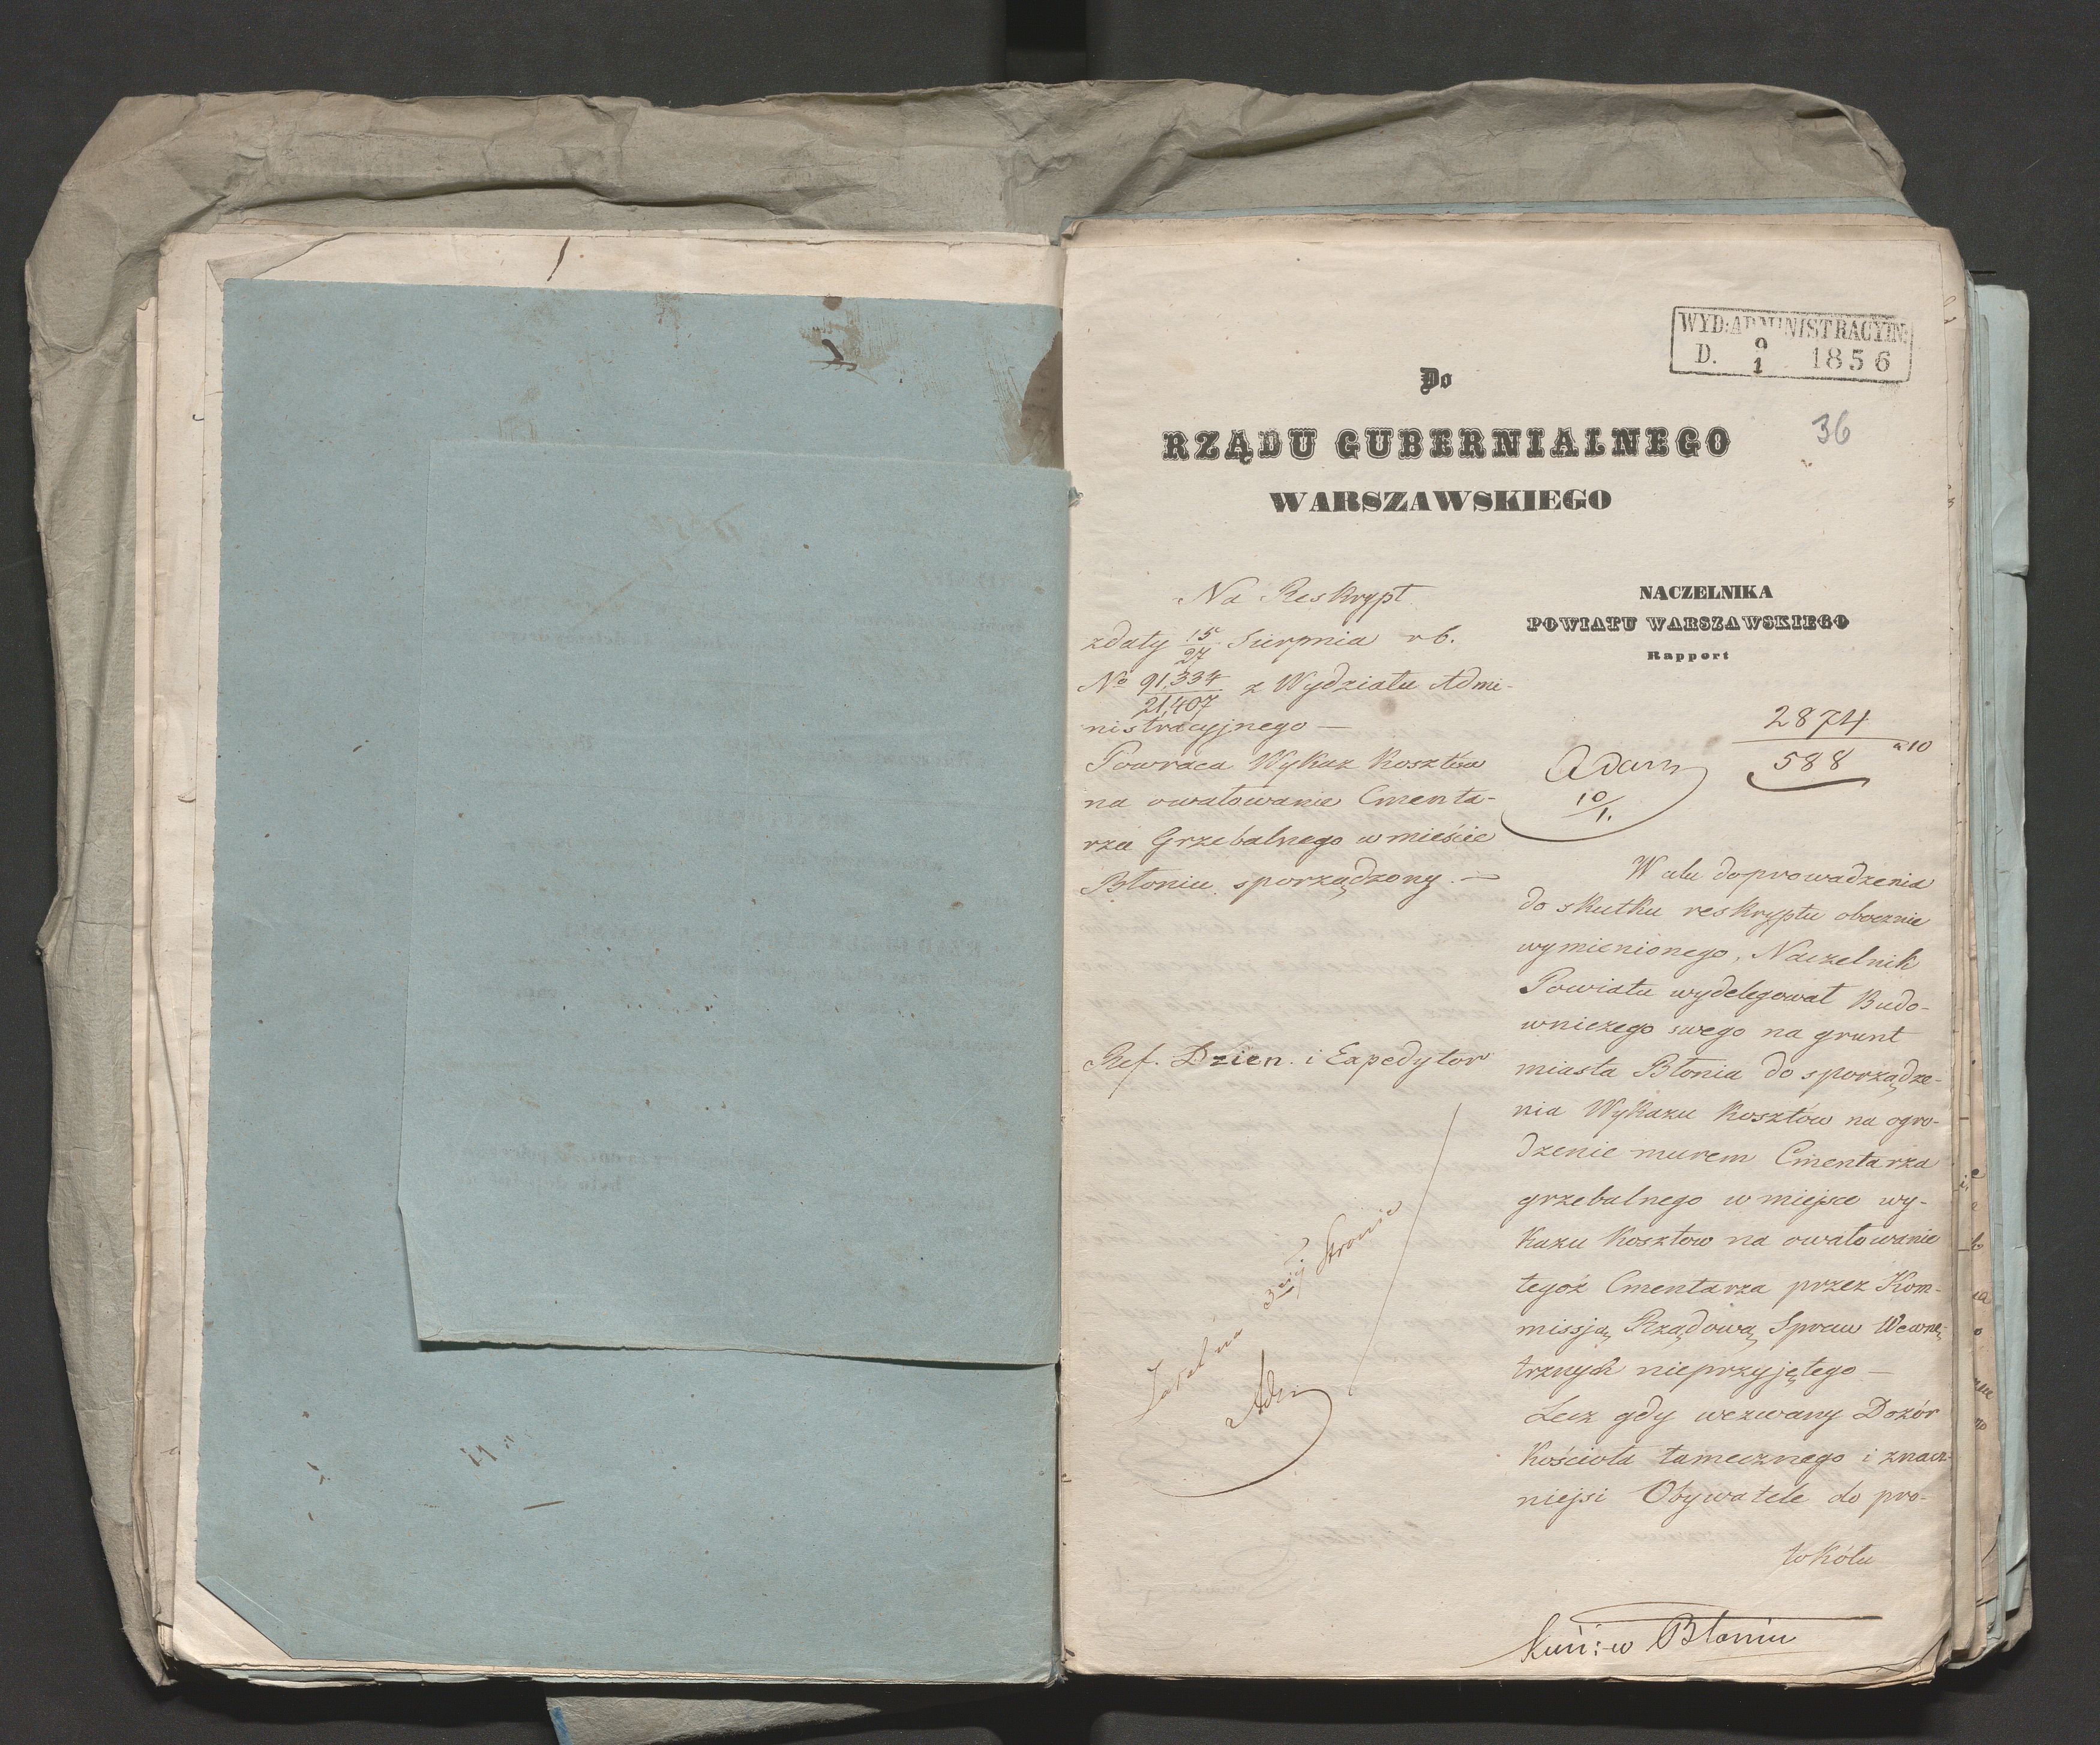 WYD: ADMINISTRACYJN:
D. 9/1 1856
36
Do
RZĄDU GUBERNIALNEGO
WARSZAWSKIEGO
Na Reskrypt
z daty 15/27 Sierpnia r b.
No 91,334/21,407 z Wydziału Admi-
nistracyjnego —
Powraca Wykaz Kosztów
na owałowanie Cmenta-
rza Grzebalnego w mieście
Błoniu sporządzony. —
Ref. Dzien. i Expedytor
3ciej stronie
NACZELNIKA
POWIATU WARSZAWSKIEGO
Rapport
2874
588
Adam
10/1.
W celu doprowadzenia
do skutku reskryptu obocznie
wymienionego, Naczelnik
Powiatu wydelegował Budo-
wniczego swego na grunt
miasta Błonia do sporządze-
nia Wykazu Kosztów na ogro-
dzenie murem Cmentarza
grzebalnego w miejsce wy-
kazu Kosztow na owałowanie
tegoż Cmentarza przez Kom-
missją Rządową Spraw Wewnę-
trznych nieprzyjętego —
Lecz gdy wezwany Dozór
Kościoła tamecznego i znacz-
niejsi Obywatele do pro-
tokółu
w Błoniu